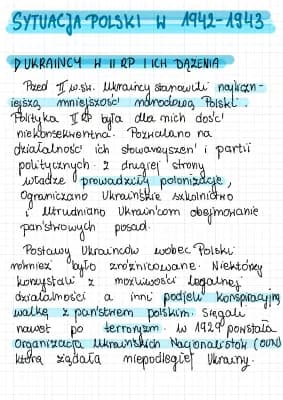 SYTUACJA POLSKI W 1942-1943
1) UKRAIŃCY W II RP I ICH DĄŻENIA
Przed II w.św. Ukraińcy stanowili najliczn-
iejszą mniejszość narodową Polski.
Polityka II RP była dla nich dość
niekonsekwentna. Pozwalano na
działalność ich stowarzyszeń i partii
politycznych. Z drugiej strony
władze prowadziły polonizację,
ograniczano ukraińskie szkolnictwo
i utrudniano Ukraińcom obejmowanie
państwowych posad.
Postawy Ukraińców wobec Polski
również było zróżnicowane. Niektórzy
korzystali z możliwości legalnej
działalności a inni podjęli konspiracyjną
walkę z państwem polskim. Sięgali
nawet po terroryzm. W 1929 powstała
Organizacja Ukraińskich Nacjonalistów (OUN)
która żądała niepodległej Ukrainy.